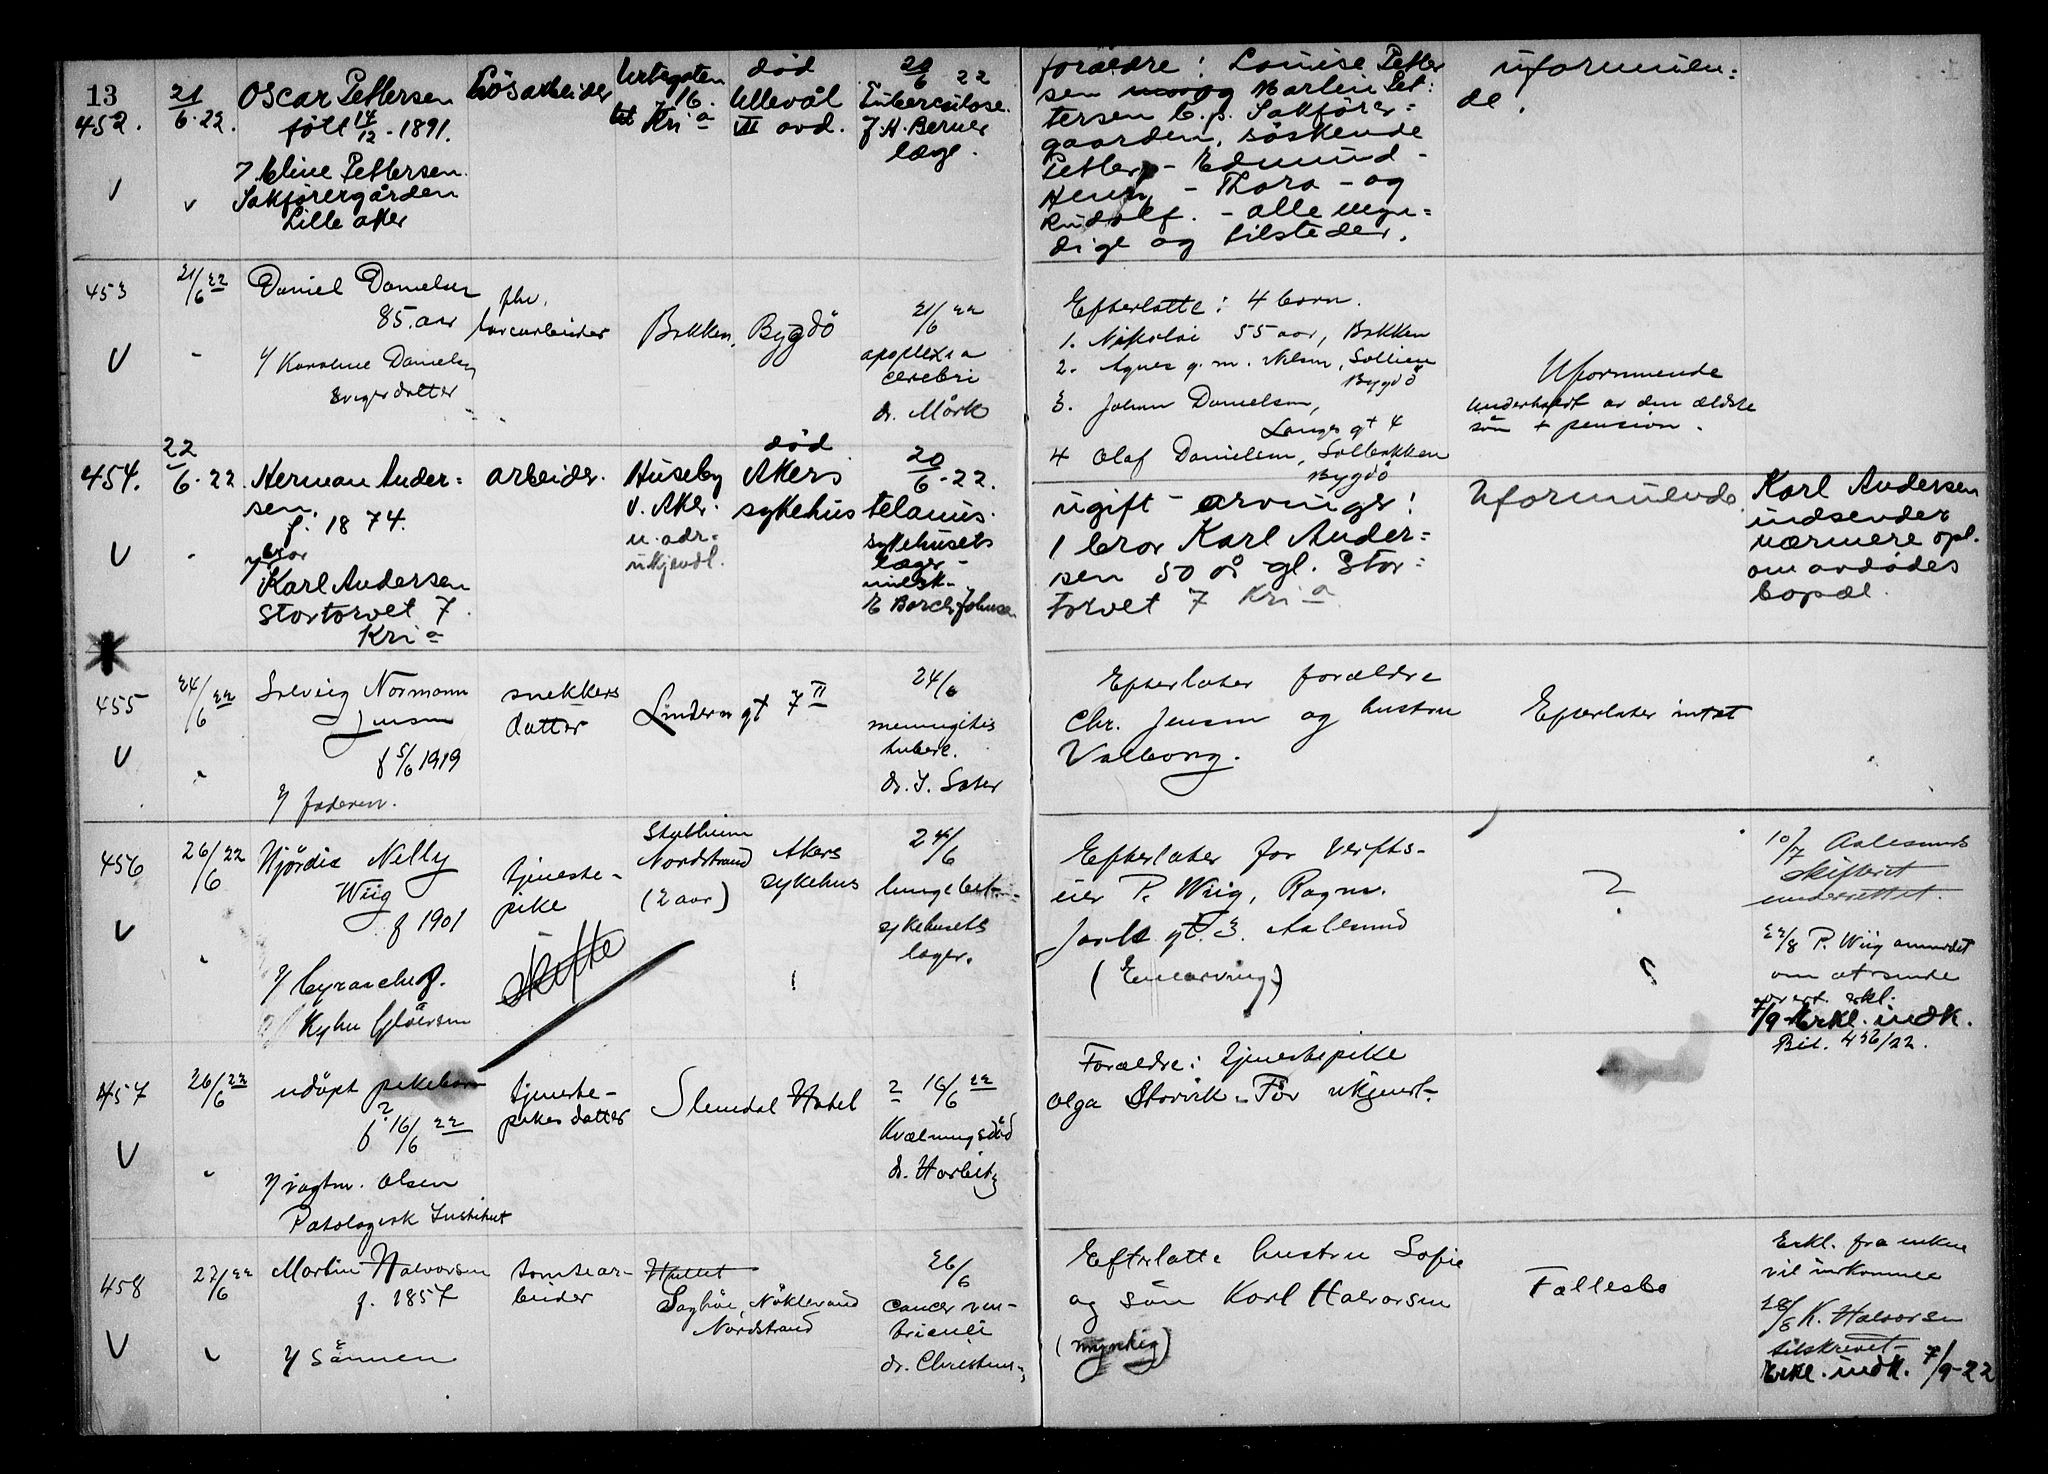 13
452.
21/6. 22.
Oscar Pettersen
født 14/12 - 1891.
Pettersen.
Sakførergården
Lille aker
Løsarbeider
Urtegaten
16.
Kria
død
Ullevål
III avd.
20/6 22
Tuberculose.
J H. Berner
læge.
forældre: Louise Petter
sen Martin Pet:
tersen b. p. Sakfører=
gaarden, søskende
Petter - Edmund -
Henry - Thora - og
Rudolf. - alle myn=
dige og tilsteder.
uformuen=
de.
453
21/6 22
Daniel Danielsen
85 aar
v/ Karoline Danielsen
svigerdatter
fhv.
Bakken, Bygdö
21/6 22
apoplexia
cerebri
dr. Mørk
Efterlatte: 4 barn.
1. Nikolai 55 aar, Bakken
2. Agnes g. m. Nilsen, Sollien
Bygdö
3. Johan Danielsen,
Langes gt 4
4 Olaf Danielsen, Solbakken
Bygdö
Uformuende
underholdt av den ældste
sön + pension.
454.
22/6. 22
Herman Ander=
sen.
f. 1874.
bror
Karl Andersen
Stortorvet 7.
Kria
arbeider.
Huseby
v. Aker.
n. adr=
ukjendt.
død
Akers
sykehus
20/6. 22.
tetanus.
sykehusets
læger -
E Borch Johnsen
ugift - arvinger:
1 bror Karl Ander=
sen 50 år gl. Stor=
torvet 7 Kria
Uformuende
Karl Andersen
indsender
nærmere opl.
om avdødes
bopæl.
455
24/6 22
Solveig Normann
Jensen
f 5/6 1919
v/ faderen.
snekkers
datter
Lindern gt 7 II
24/6
meningitis
tuberc.
dr. Sater
Efterlater forældre
Chr. Jensen og hustru
Valborg.
Efterlater intet
456
26/6 22
Hjördis Nelly
Wiig
f 1901
v/ byraachef
Kyhn
tjeneste-
pike
skifte
Nordstrand
(2 aar)
Akers
sykehus
24/6
sykehusets
læger.
Efterlater far verfts-
eier P. Wiig, Ragnv.
Jarls gt. 3. Aalesund
(Enearving)
?
10/7 Aalesunds
skifteret
underrettet.
22/8 P. Wiig anmodet
om at sende
erkl.
7/9 Erkl. indk.
Bil. 456/22.
457
26/6 22
udöpt pikebarn
f ? 16/6 22
v/ vagtm. Olsen
Patologisk Institut
tjeneste-
pikes datter
Slemdal Hotel
? 16/6 22
Kvælningsdöd
dr. Harbitz
Forældre: tjenestepike
Olga Storvik. - Far ukjent.
458
27/6 22
Martin Halvorsen
f. 1857
v/ sønnen
tomtear-
beider
Nöklevand
Nordstrand
26/6
cancer ven-
triculi
dr. Christensen
Efterlatte hustru Sofie
og sön Karl Halvorsen
(myndig)
Fællesbo
Erkl. fra enken
vil inkomme
28/8 K. Halvorsen
tilskrevet
Erkl. indk. 7/9-22